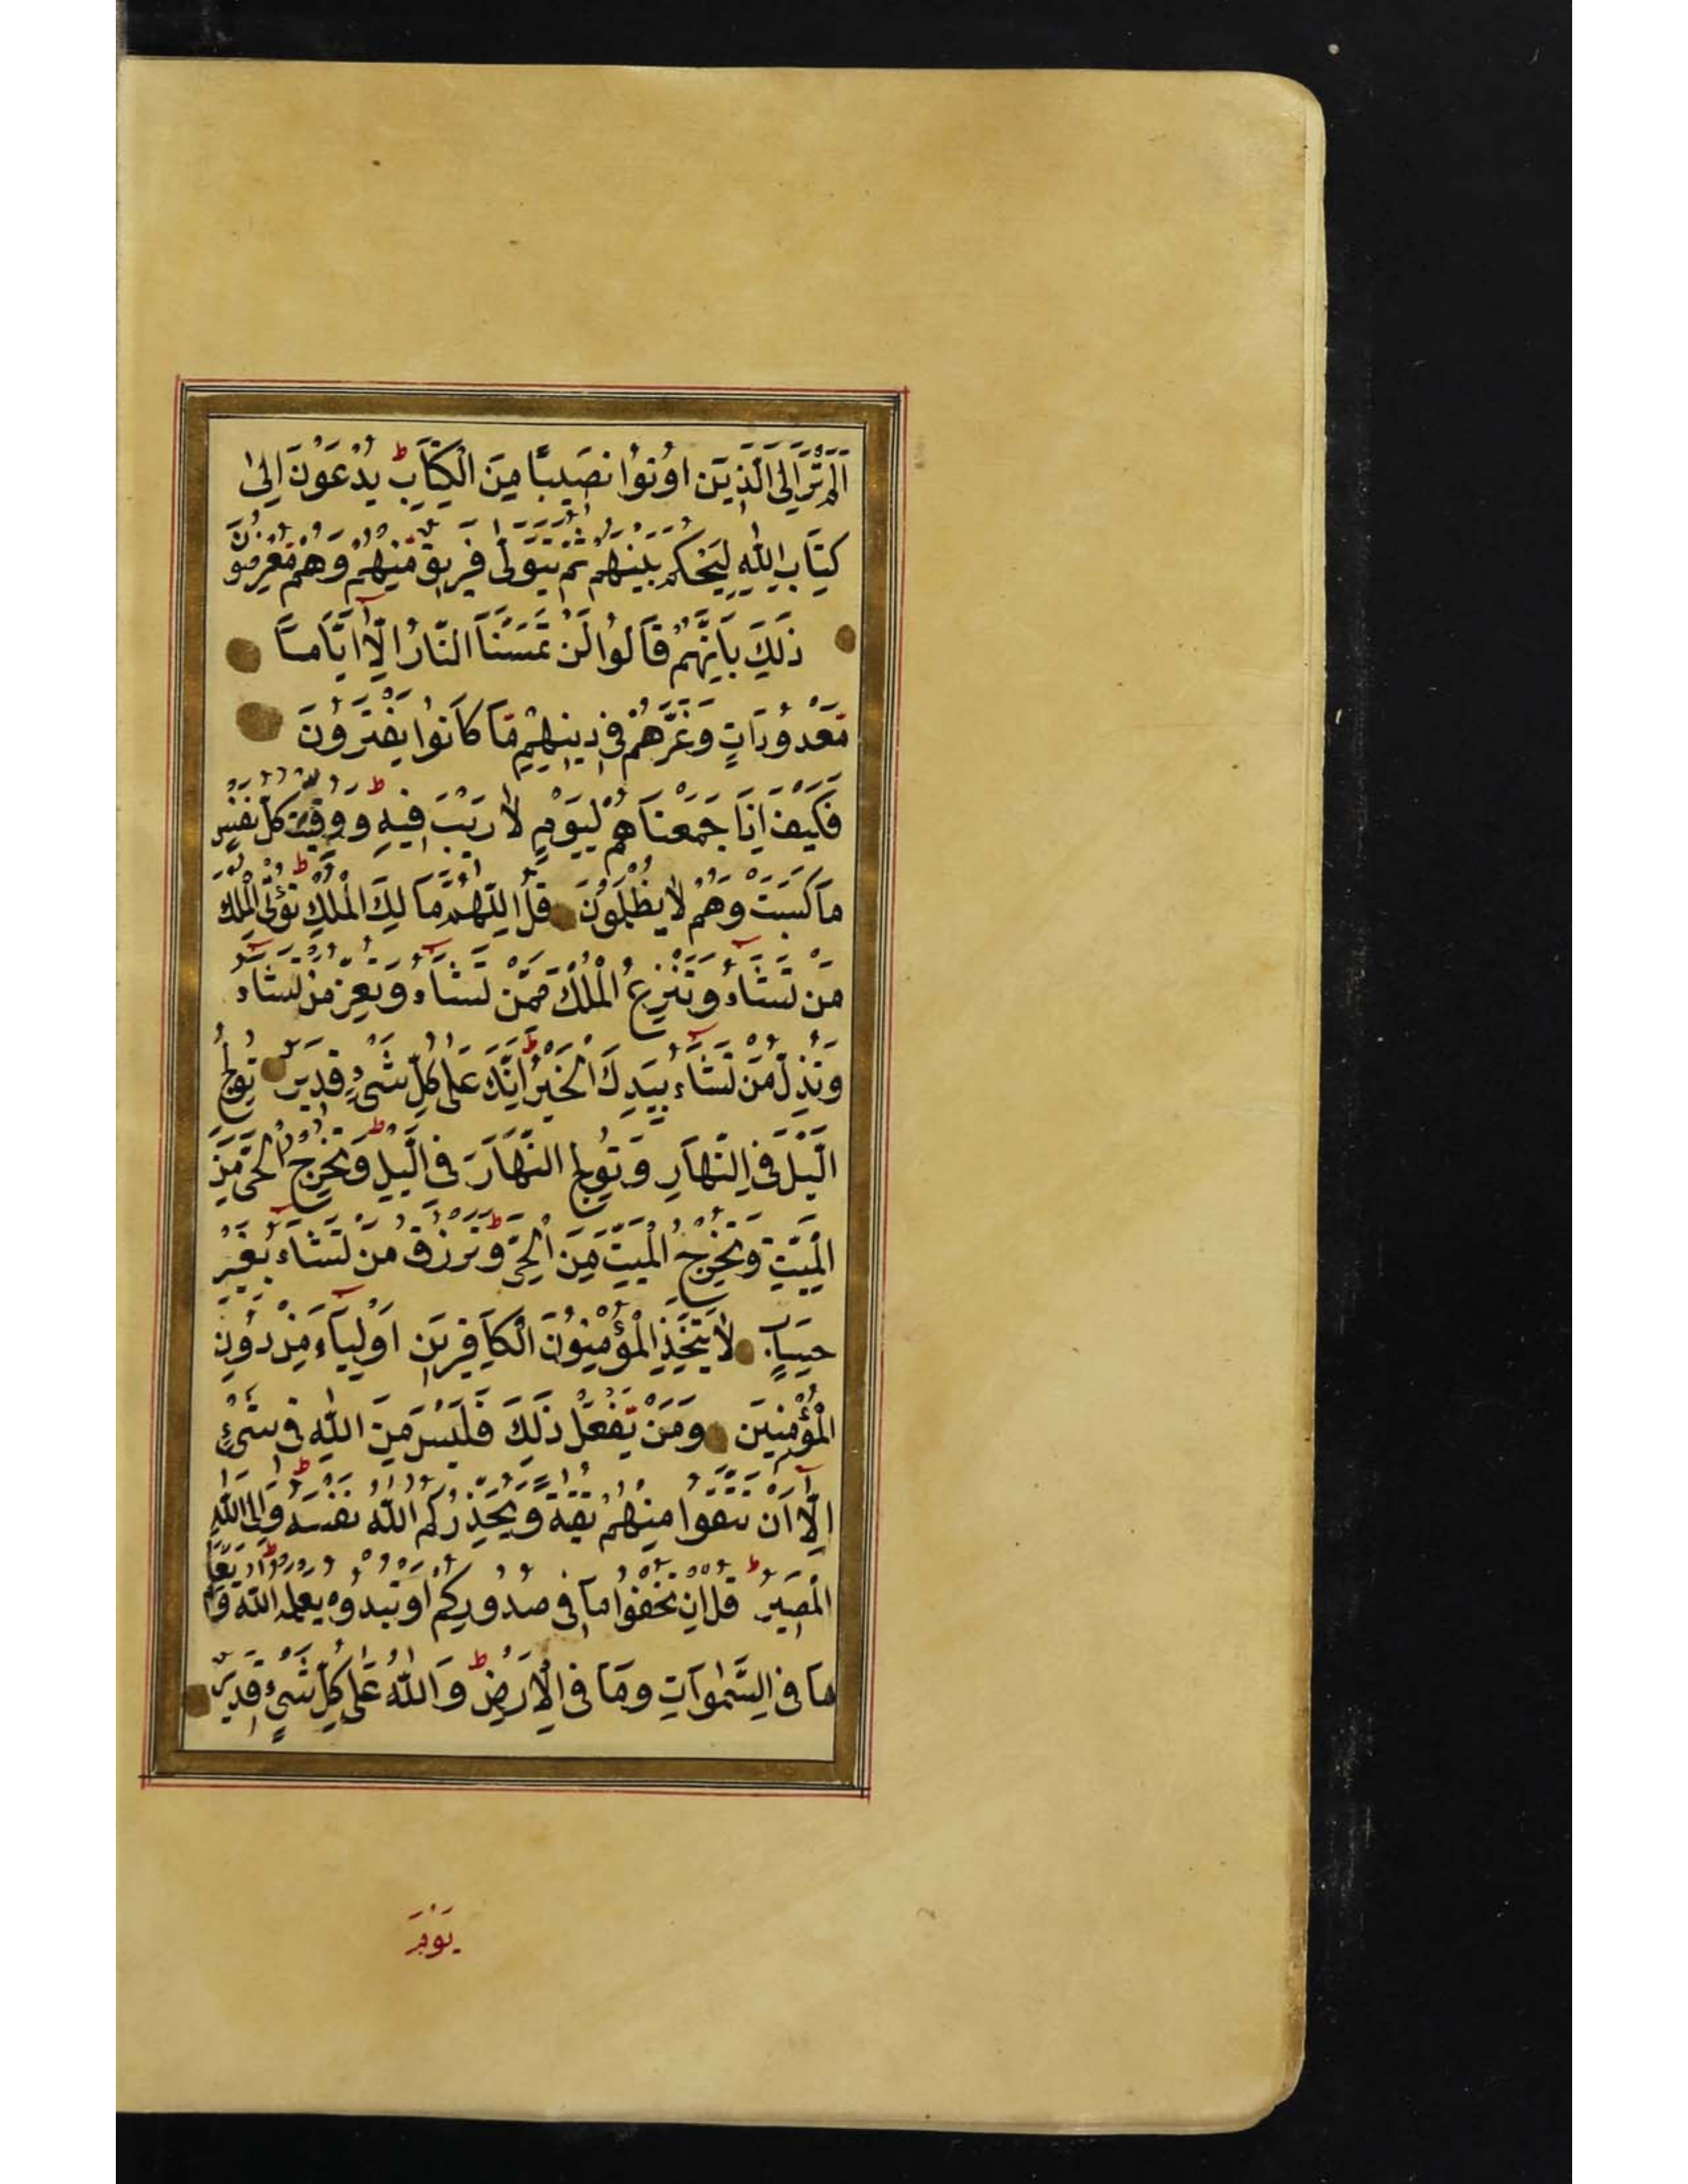 اَلَمْ تَرَ اِلَى الَّذِينَ اُوتُوا نَصِيبًا مِنَ الْكِتَابِ ط يُدْعَوْنَ اِلىٰ
كِتَابِ اللّٰهِ لِيَحْكُمَ بَيْنَهُمْ ثُمَّ يَتَوَلّٰى فَرِيقٌ مِنْهُمْ وَهُمْ مُعْرِضُونَ
ذٰلِكَ بِاَنَّهُمْ قَالُوا لَنْ تَمَسَّنَا النَّارُ اِلَّا اَيَّامًا
مَعْدُودَاتٍ وَغَرَّهُمْ فِي دِينِهِمْ مَا كَانُوا يَفْتَرُونَ
فَكَيْفَ اِذَا جَمَعْنَاهُمْ لِيَوْمٍ لَا رَيْبَ فِيهِ ط وَوُفِّيَتْ كُلُّ نَفْسٍ
مَا كَسَبَتْ وَهُمْ لَا يُظْلَمُونَ قُلِ اللّٰهُمَّ مَالِكَ الْمُلْكِ ط تُؤْتِي الْمُلْكَ
مَنْ تَشَاءُ وَتَنْزِعُ الْمُلْكَ مِمَّنْ تَشَاءُ وَتُعِزُّ مَنْ تَشَاءُ
وَتُذِلُّ مَنْ تَشَاءُ بِيَدِكَ الْخَيْرُ ط اِنَّكَ عَلٰى كُلِّ شَيْءٍ قَدِيرٌ تُولِجُ
الَّيْلَ فِي النَّهَارِ وَتُولِجُ النَّهَارَ فِي الَّيْلِ ط وَتُخْرِجُ الْحَيَّ مِنَ
الْمَيِّتِ وَتُخْرِجُ الْمَيِّتَ مِنَ الْحَيِّ ط وَتَرْزُقُ مَنْ تَشَاءُ بِغَيْرِ
حِسَابٍ لَا يَتَّخِذِ الْمُؤْمِنُونَ الْكَافِرِينَ اَوْلِيَاءَ مِنْ دُونِ
الْمُؤْمِنِينَ وَمَنْ يَفْعَلْ ذٰلِكَ فَلَيْسَ مِنَ اللّٰهِ فِي شَيْءٍ
اِلَّا اَنْ تَتَّقُوا مِنْهُمْ تُقٰيةً وَيُحَذِّرُكُمُ اللّٰهُ نَفْسَهُ ط وَاِلَى اللّٰهِ
الْمَصِيرُ ط قُلْ اِنْ تُخْفُوا مَا فِي صُدُورِكُمْ اَوْ تُبْدُوهُ يَعْلَمْهُ اللّٰهُ ط وَيَعْلَمُ
مَا فِي السَّمٰوَاتِ وَمَا فِي الْاَرْضِ ط وَاللّٰهُ عَلٰى كُلِّ شَيْءٍ قَدِيرٌ
يَوْمَ